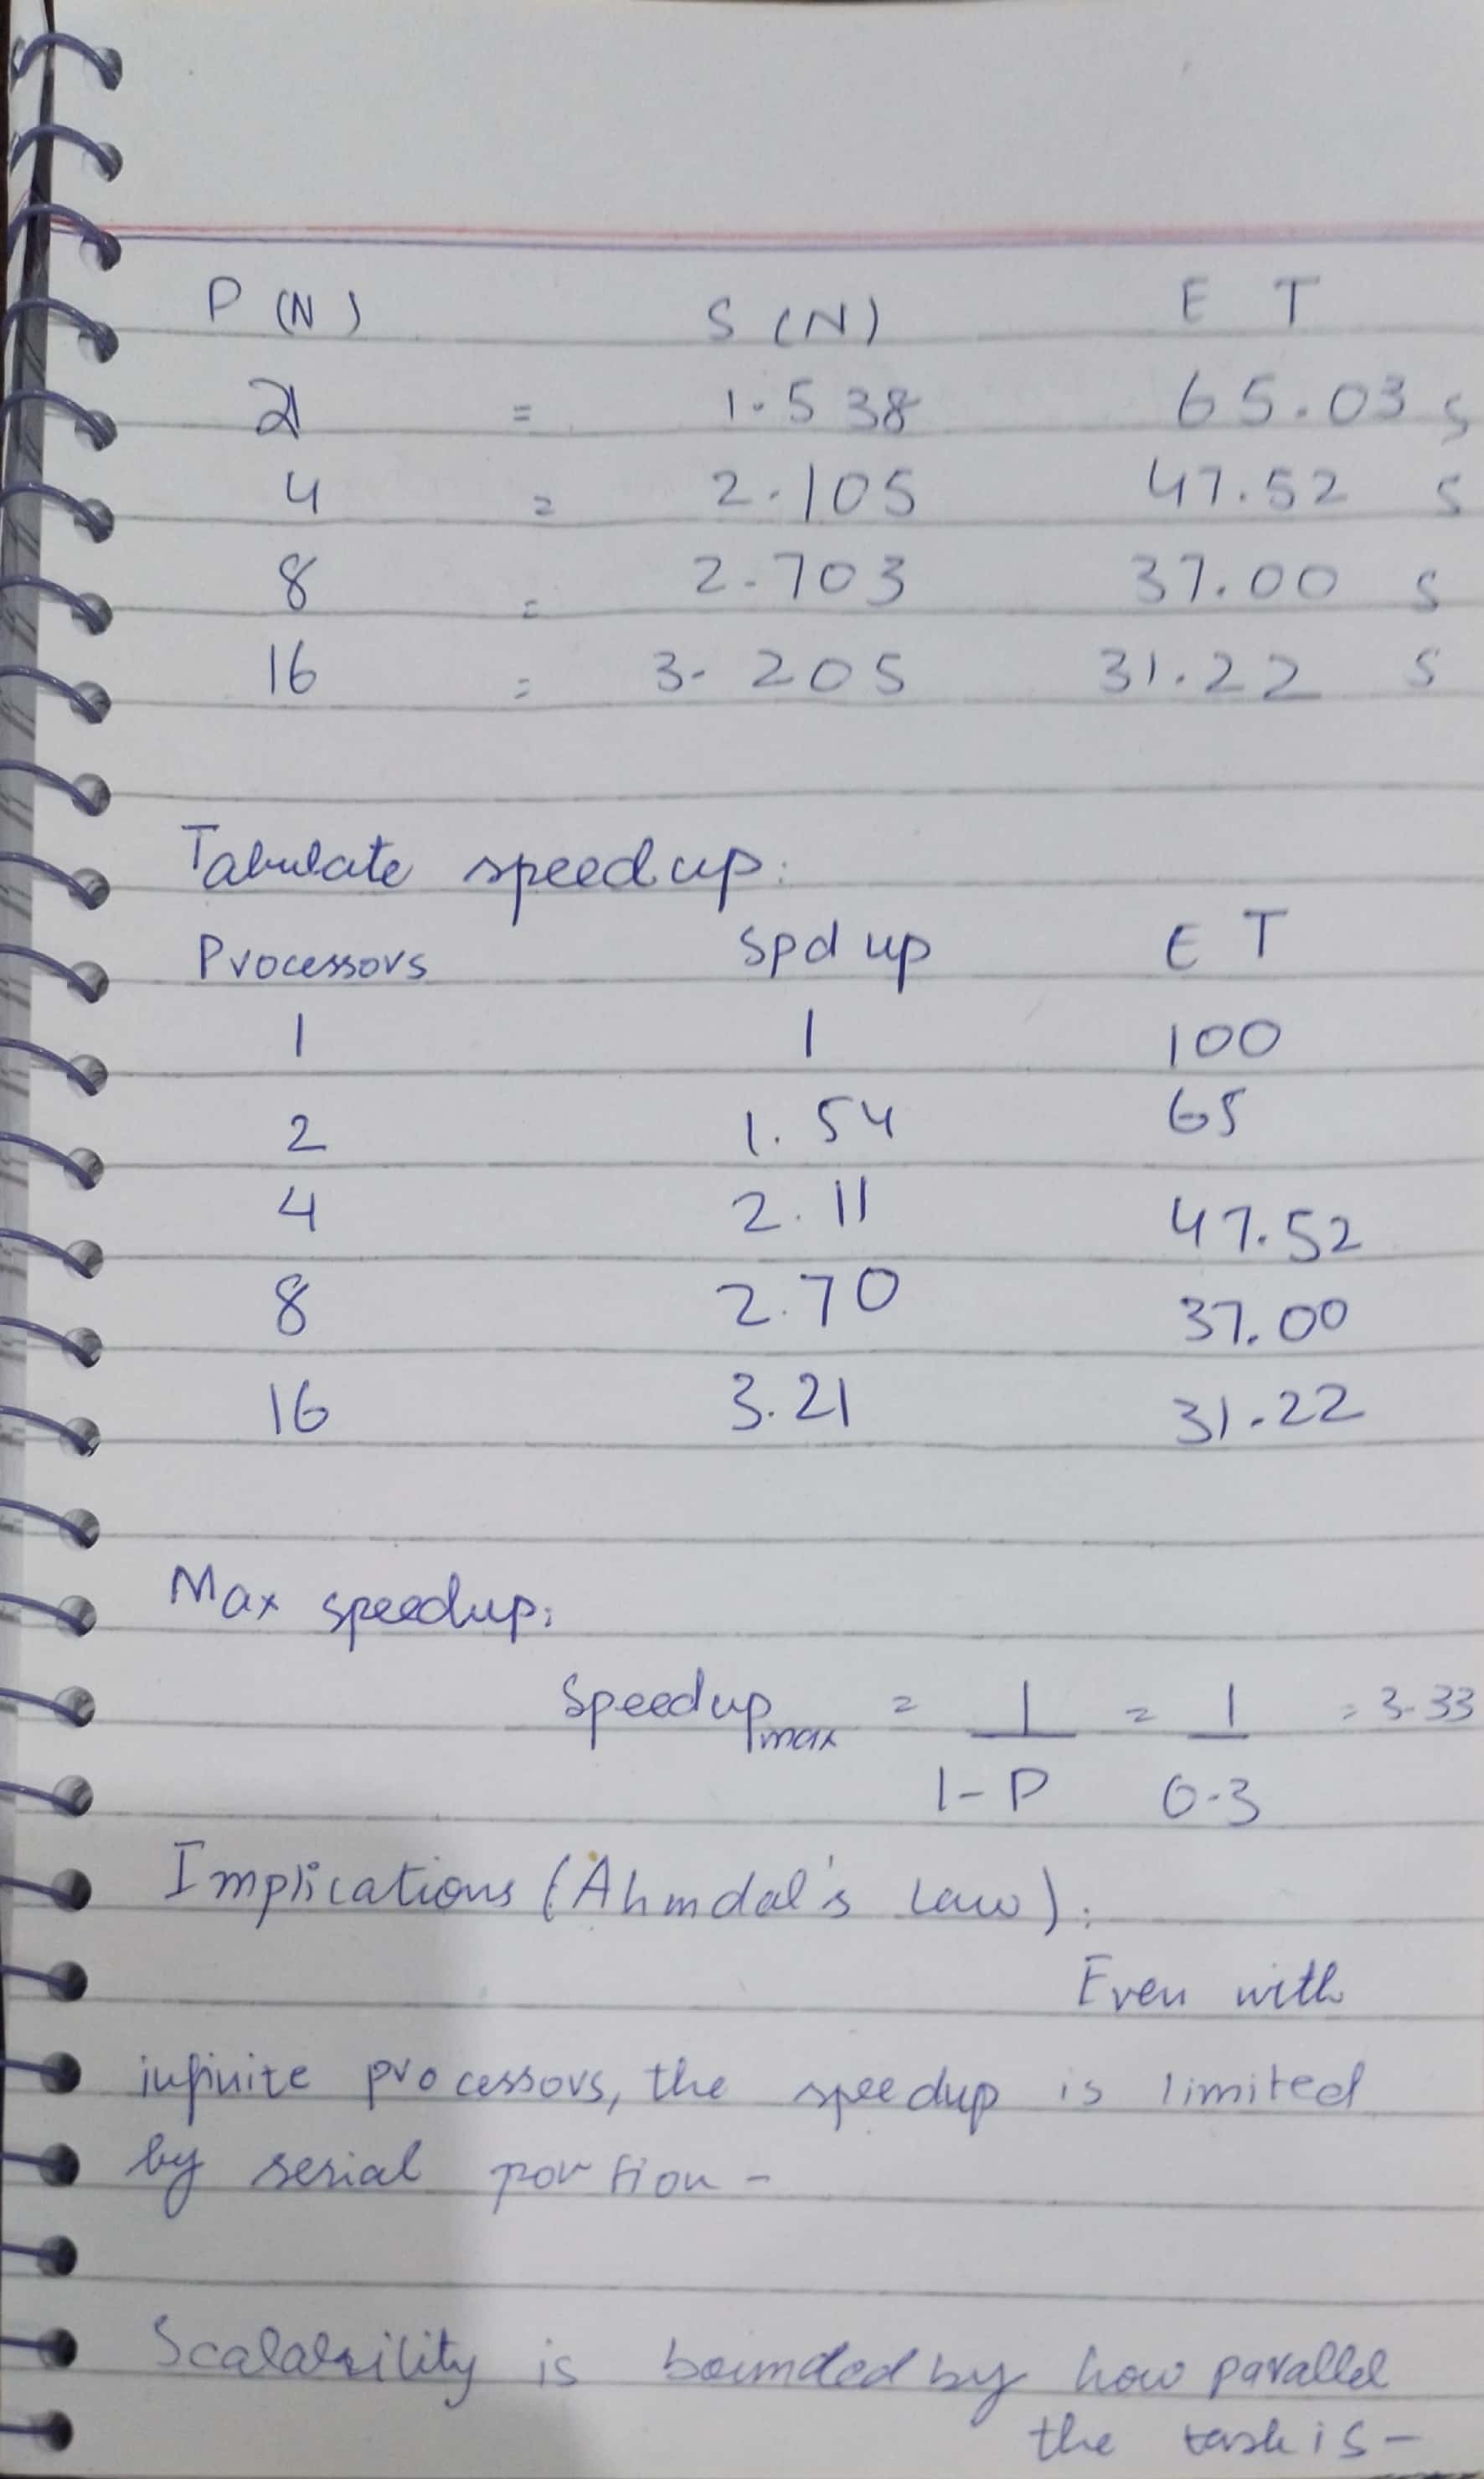 P (N) S (N) E T
2 = 1.538 65.03 s
4 = 2.105 47.52 s
8 = 2.703 37.00 s
16 = 3.205 31.22 s
Tabulate speedup:
Processors Spd up E T
1 1 100
2 1.54 65
4 2.11 47.52
8 2.70 37.00
16 3.21 31.22
Max speedup:
Speedup max = 1 / 1-P = 1 / 0.3 = 3.33
Implications (Ahmdal's Law):
Even with
infinite processors, the speedup is limited
by serial portion -
Scalability is bounded by how parallel
the task is -